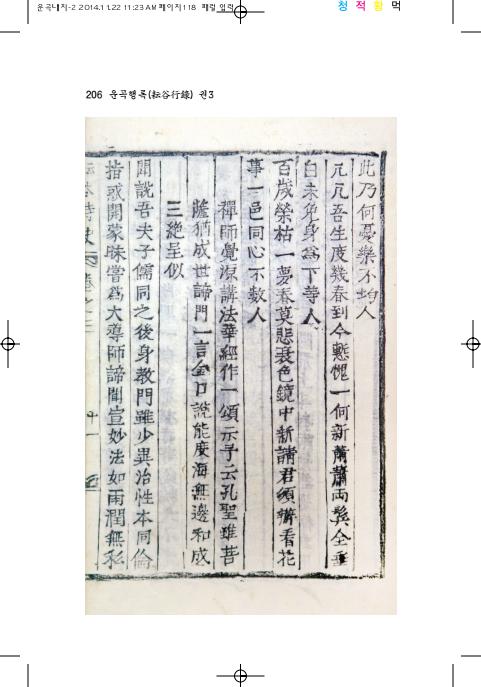 운곡내지-2 2014.11.22 11:23 AM 페이지118 패럴 입력
청 적 황 먹
206 운곡행록(耘谷行錄) 권3
此乃何憂樂不均人
兀兀吾生度幾春到今慙愧一何新蕭蕭兩鬂全垂
白未免身爲下等人
百歲榮枯一夢春莫悲衰色鏡中新請君須辦看花
事一邑同心不数人
禪師覺源講法華經作一頌示予云孔聖雖昔
瞻猶成世諦門一言金口說能度海無邊和成
三絶呈似
聞說吾夫子儒同之後身教門雖少異治性本同倫
指惑開蒙昧嘗爲大導師諦聞宣妙法如雨潤無私